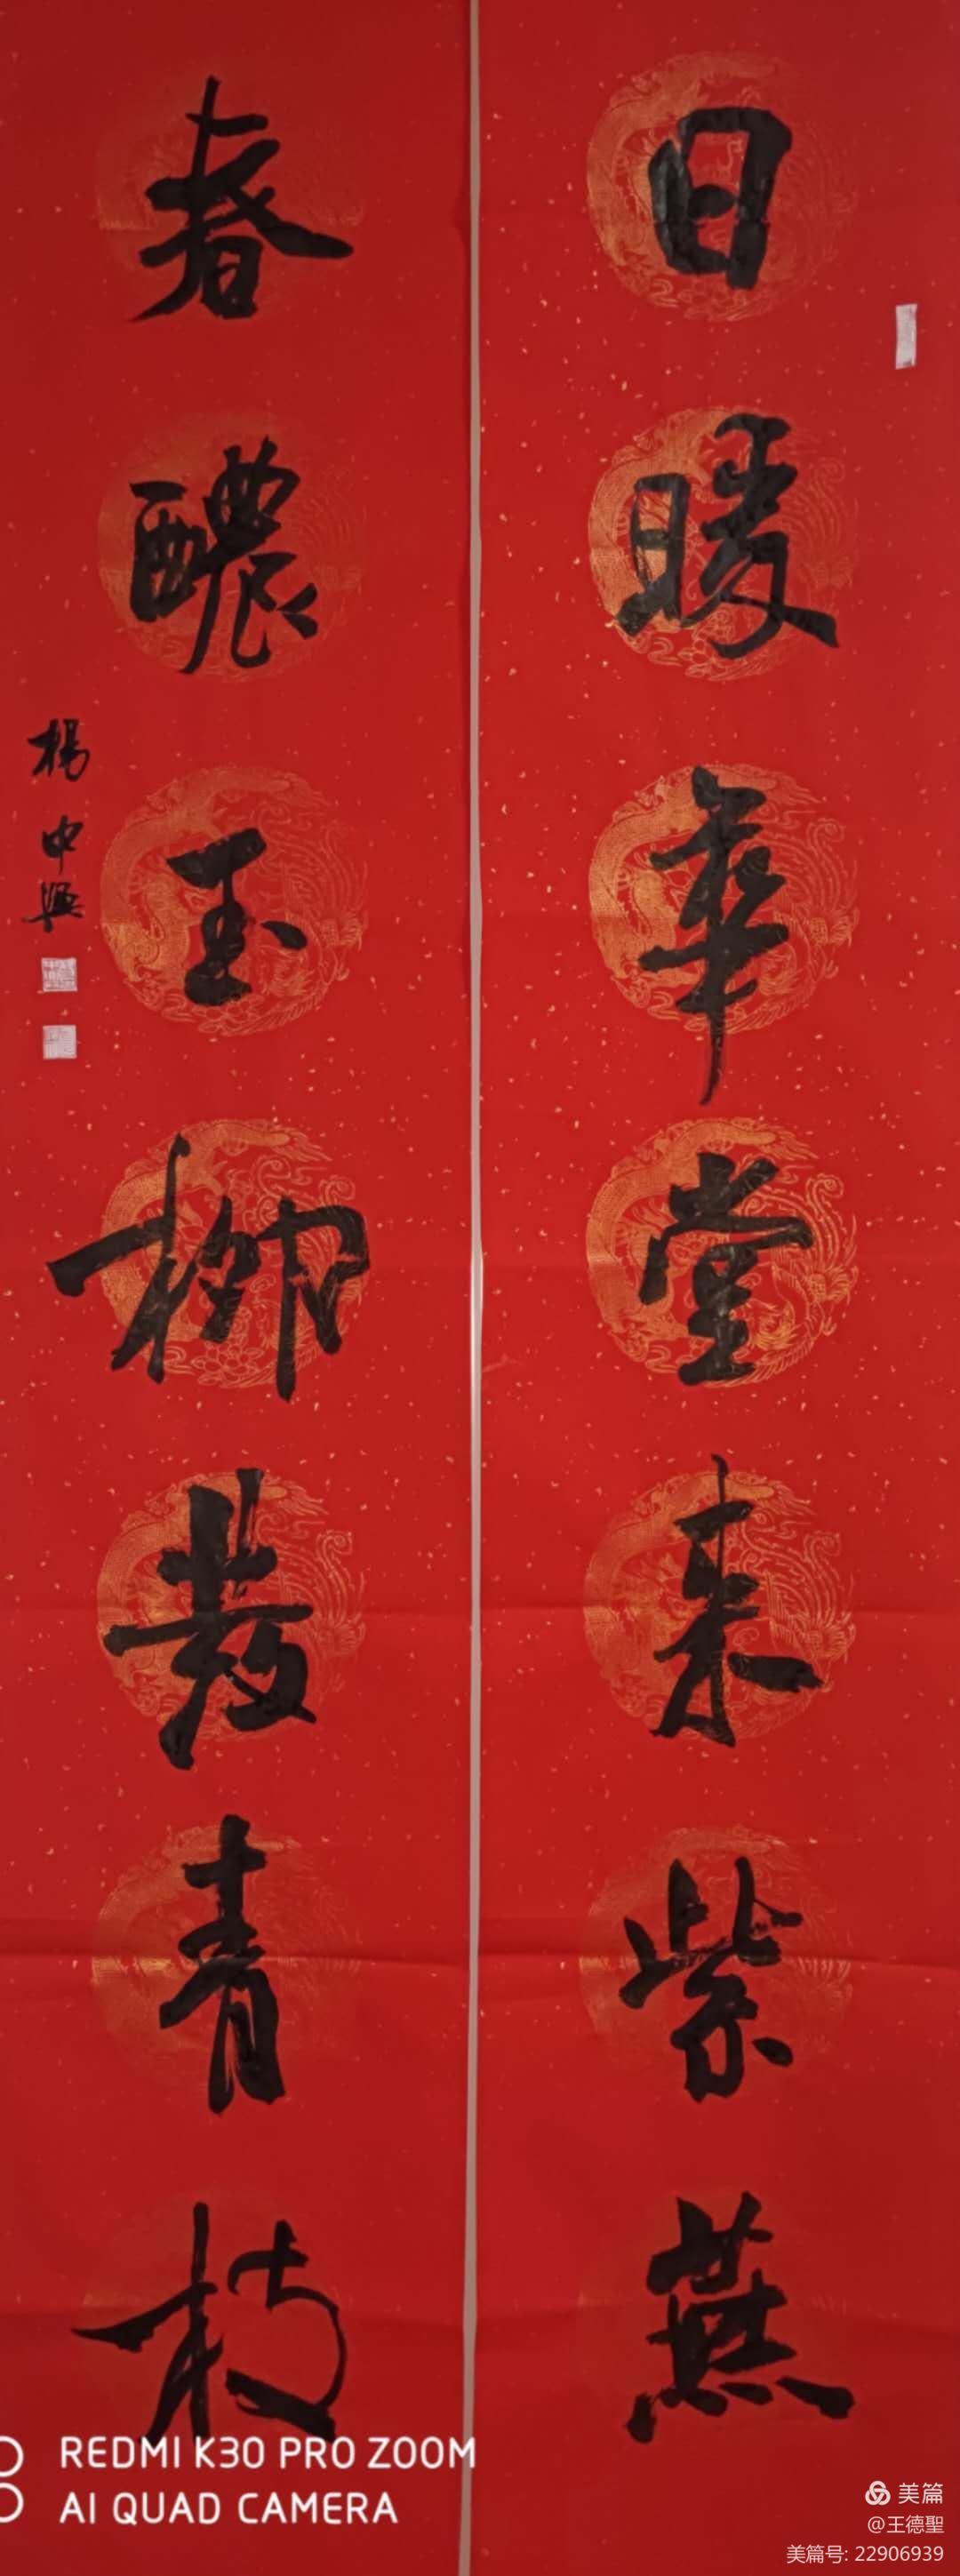 日暖華堂来紫燕
春醲玉柳發青枝
楊中興
REDMI K30 PRO ZOOM
AI QUAD CAMERA
美篇
@王德聖
美篇号: 22906939